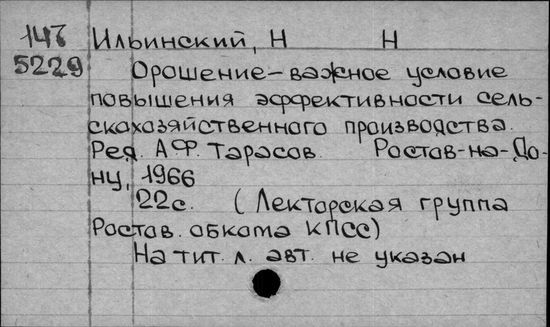 147 Ильинский, Н Н
5229 Орошение – важное условие
повышения эффективности сель-
скохозяйственного производства.
Ред. А.Ф. Тарасов. Ростов-на-До-
ну, 1966
22с. (Лекторская группа
Ростов. обкома КПСС)
На тит. л. авт. не указан